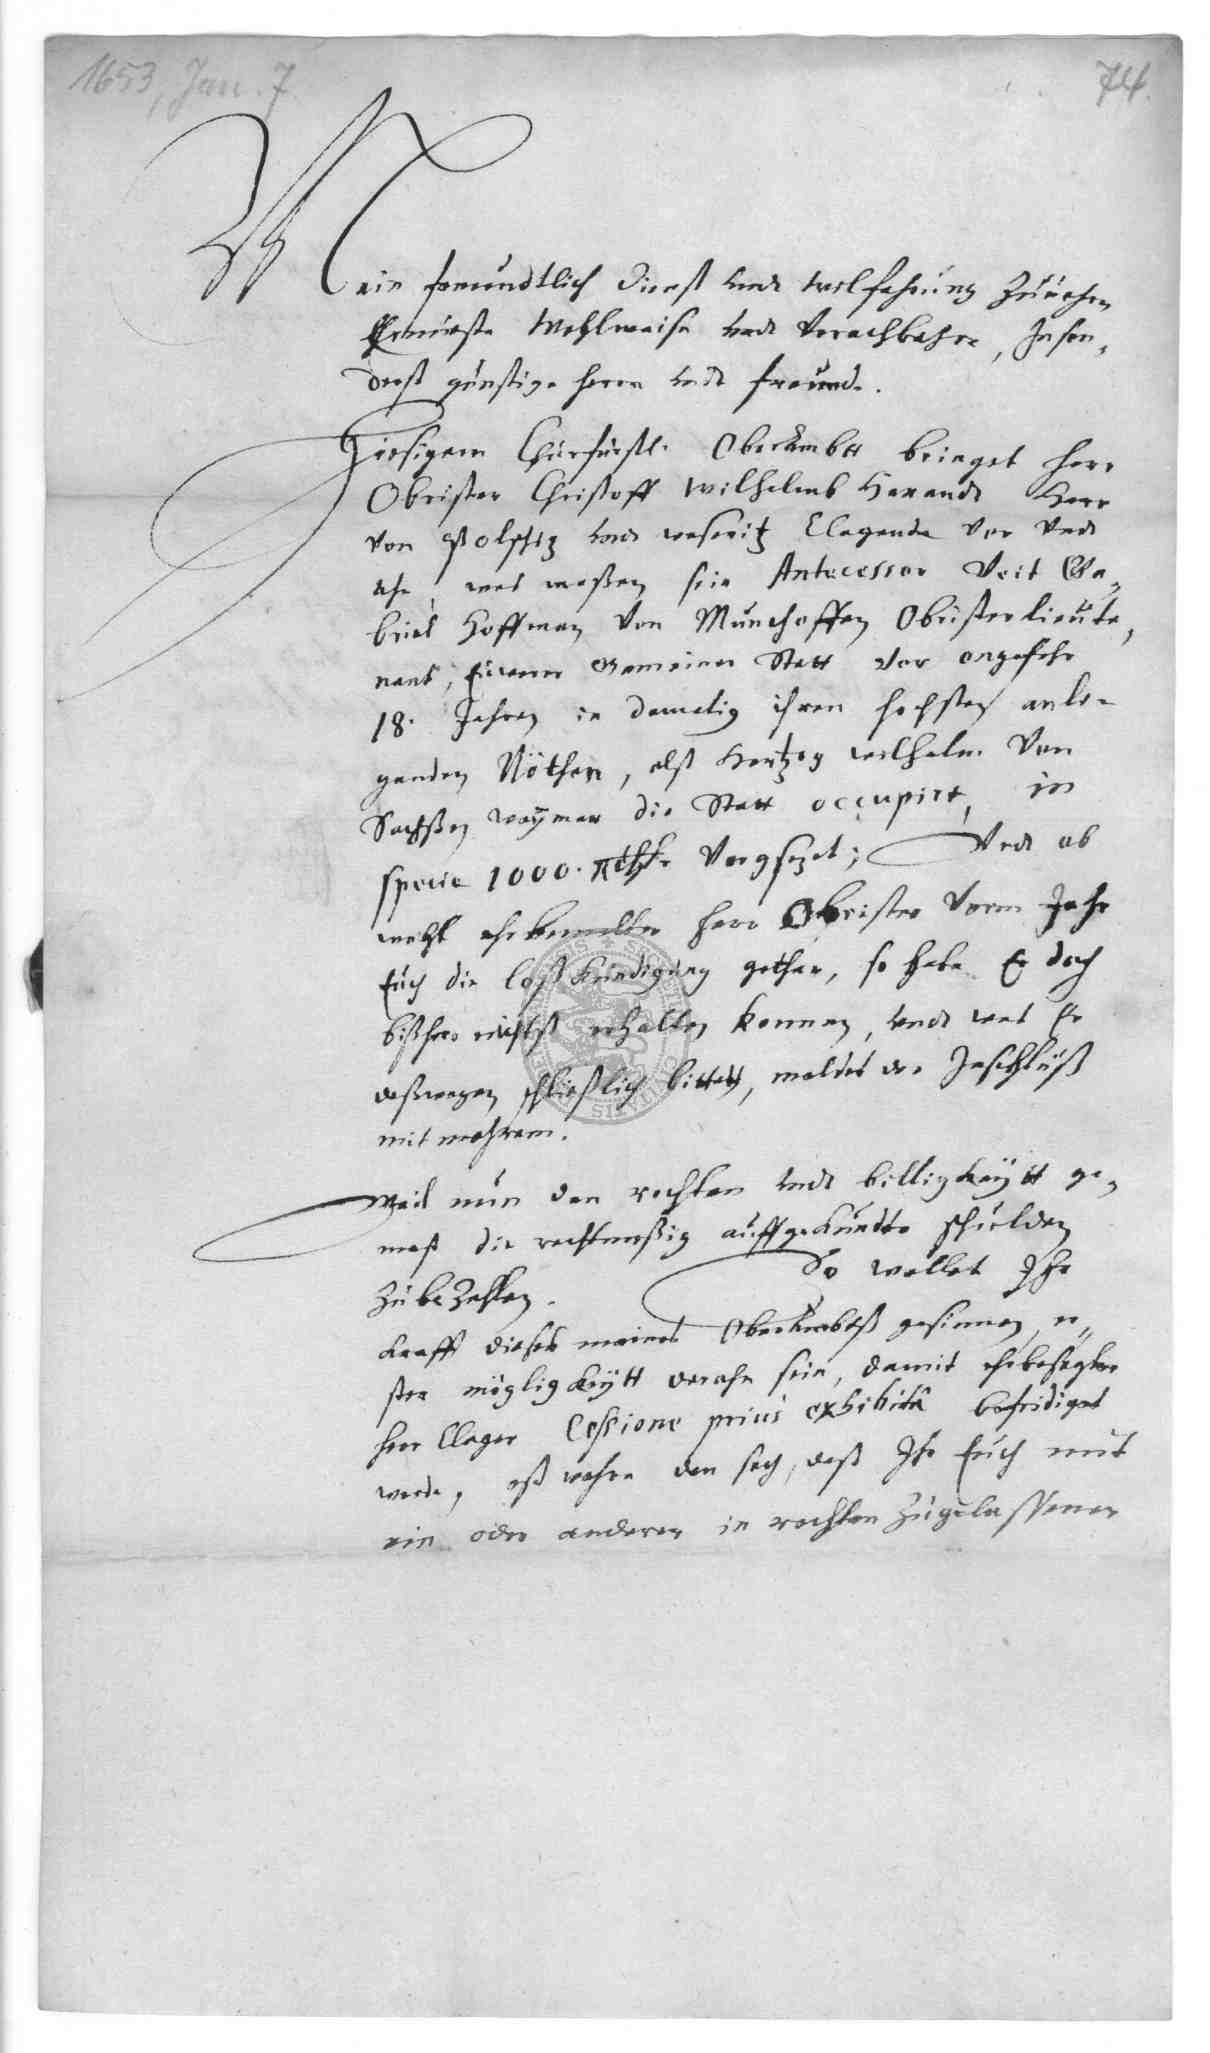 1653, Jan. 7.
74.
Mein freundtlich dienst undt wilfahrung zuvohrn,
Ehrnveste Wohlweise undt Vorachbahre, Inson-
derß günstige herrn undt freunde.
Hiesigem Churfürstl. Oberambtt bringet herr
Obrister Christoff Wilhelmb Harandt Herr
von Polschitz undt weseritz Clagende vor undt
ahn, was maßen sein Antecessor Veit Ga-
briel Hoffman von Munchoffen Obristerlieute-
nant, Eurer Gemeiner Statt vor ongefehr
18. Jahren in damalig ihren hochsten anlie-
genden Nöthen, alß Hertzog wilhelm von
Sachßen weymar die Statt occupirt, in
specie 1000. Rthlr vorgsezet; Undt ob
wohl ehrbemelter herr Obrister vorm Jahr
Euch die loßkündigung gethan, so habe Er doch
bißhero nichtß erhalten konnen, undt was Er
deßwegen schließlich bittett, meldet der Inschluß
mit mehrem.
Weil nun den rechten undt billigkeytt ge-
meß die rechtmeßig auffgekundte schulden
zubezahlen. So wollet Ihr
krafft dieses meines Oberambtß gesinnen, er-
ster möglig keytt darahn sein, damit ehrbesagter
herr Clager Cessione prius exhibitâ befridiget
werde, eß wehre den sach, daß Ihr Euch mit
ein oder anderer in rechten zugelassener